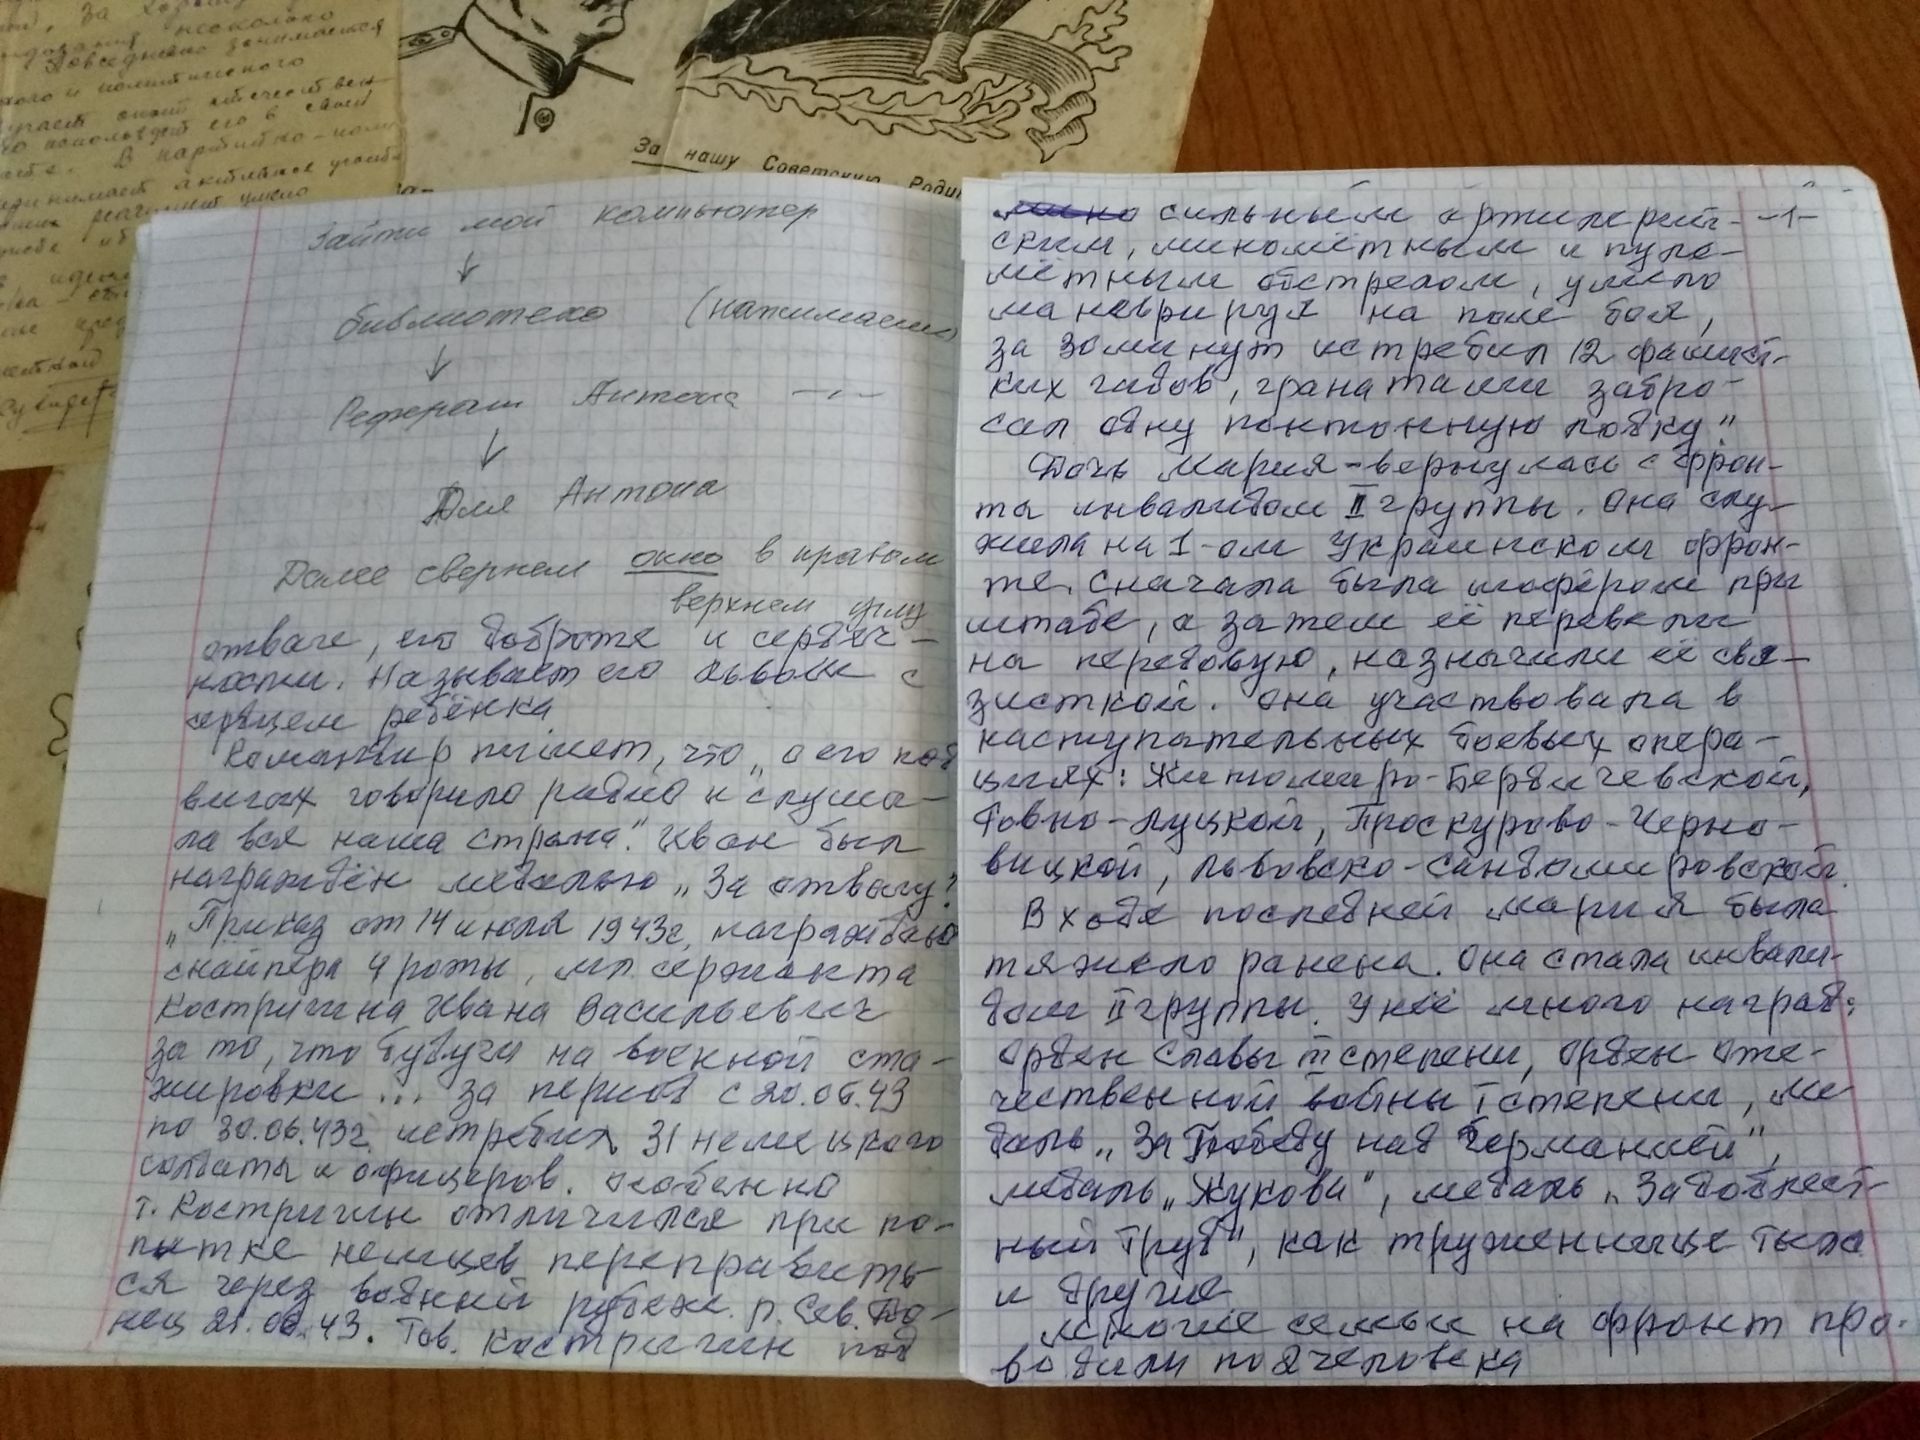 За нашу Советскую Родин
зайти мой компьютер
↓
библиотека (нажимаем)
↓
Реферат Антона —"—
↓
Для Антона
Далее свернем окно в правом
верхнем углу
отваге, его доброте и сердеч-
ности. Называет его львом с
сердцем ребёнка
Командир пишет, что „о его под
вигах говорило радио и слуша-
ла вся наша страна." Иван был
награждён медалью „За отвагу"
„Приказ от 14 июля 1943г, награждаю
снайпера 4 роты, мл. сержанта
Костригина Ивана Васильевич
за то, что будучи на военной ста-
жировки... за период с 20.06.43
по 30.06.43г. истребил 31 немецкого
солдаты и офицеров. Особенно
т. Костригин отличился при по-
пытке немцев переправить
ся через водный рубеж р. Сев. До-
нец 21.06.43. Тов. Костригин под
сильным артилерий- -1-
ским, миномётным и пуле-
мётным обстрелом, умело
маневрируя на поле боя,
за 30 минут истребил 12 фашист-
ких гадов, гранатами забро-
сал одну понтонную лодку."
Дочь Мария - вернулась с фрон-
та инвалидом II группы. Она слу-
жила на 1-ом Украинском фрон-
те. Сначала была шофёром при
штабе, а затем её перевели
на передовую, назначили её свя-
зисткой. Она участвовала в
наступательных боевых опера-
циях: Житомиро-Бердичевской,
Ровно-Луцкой, Проскурово-Черно-
вицкой, Львовско-Сандомировской.
В ходе последней Мария была
тяжело ранена. Она стала инвали-
дом II группы. У неё много наград:
Орден Славы III степени, Орден Оте-
чественной войны I степени, ме
даль „За Победу над Германией",
медаль „Жукова", медаль „За доблест-
ный труд", как труженнице тыла
и другие
Многие семьи на фронт про-
водили по 2 человека